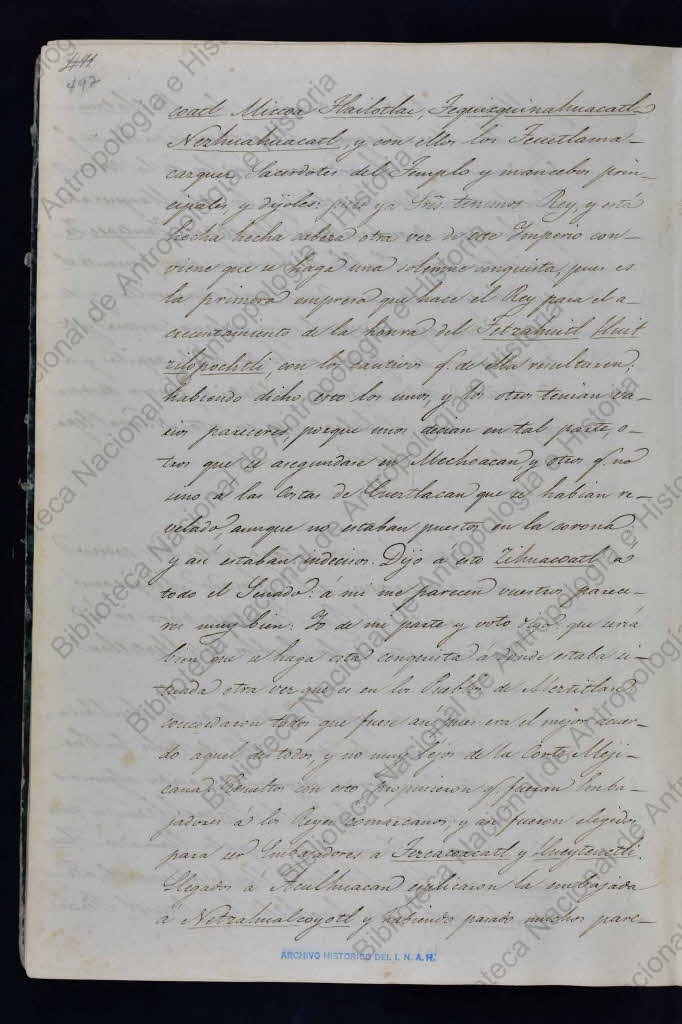 491
492
coatl Miccoa Hailotlac, Tequixquinahuacatl
Nezhuahuacatl, y con ellos los Teuctlama-
cazquez Sacerdotes del Templo y mancebos prin-
cipales y dijoles: pues ya Srēs. tenemos Rey, y está
hecha hecha cabeza otra vez de este Imperio con-
viene que se haga una solemne conquista, pues es
la primera empresa que hace el Rey para el a-
crecentamiento de la honra del Tetzahuitl Huit
zilopochtli, con los cautivos q. de ella resultaren;
habiendo dicho esto los unos, y los otros tenian va-
rios pareceres, porque unos decian en tal parte, o-
tros que se asegundase en Mechoacan, y otros q. no
sino á las Costas de Cuextlacan que se habian re-
velado, aunque no estaban puestos en la corona
y así estaban indecisos. Dijo á esto Zihuacoatl á
todo el Senado: á mi me parecen vuestros parece-
res muy bien: Yo de mi parte y voto digo que será
bien que se haga esta conquista á donde estaba si-
tuada otra vez que es en los Pueblos de Meztitlan
concordaron todos que fuese así, pues era el mejor acuer-
do aquel de todos, y no muy lejos de la Corte Meji-
cana. Resueltos con esto propusieron q. fueran Emba-
jadores á los Reyes comarcanos, y así fueron elegidos
para ser Embajadores á Tezcacoacatl y Hueyteuctli.
Llegados á Aculhuacan esplicaron la embajada
á Netzahualcoyotl y habiendo pasado muchos pare-
ARCHIVO HISTORICO DEL I. N. A. H.
Biblioteca Nacional de Antropología e Historia